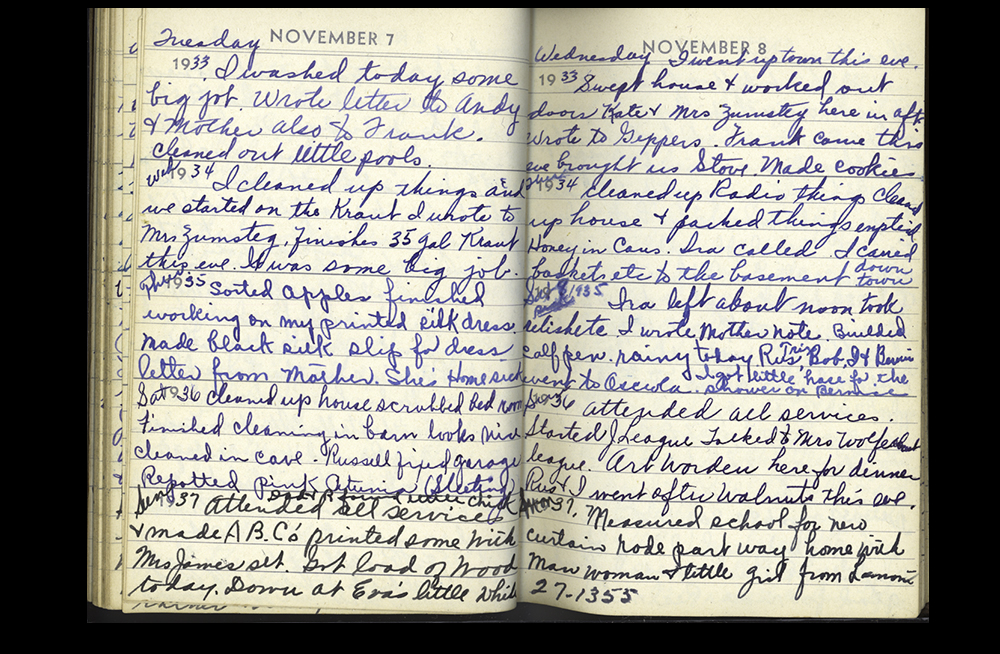 Tuesday NOVEMBER 7
1933 I washed today some
big job. Wrote letter to Andy
& Mother also to Frank.
cleaned out little pools.
Wed 1934 I cleaned up things and
we started on the Kraut I wrote to
Mrs Zumsteg, finishes 35 gal Kraut
this eve. It was some big job.
1935 Sorted apples finished
working on my printed silk dress.
Made black silk slip for dress
letter from Mother. She's Home sick
Sat 1936 cleaned up house scrubbed bed room
Finished cleaning in barn looks nice
cleaned in cave. Russell fixed garage
Repotted Pink
Sun 1937 attended all services
& made A B.C's printed some with
Mrs James set. Got load of Wood
today. Down at Eva's little while
Wednesday NOVEMBER 8 I went up town this eve.
1933 Swept house & worked out
doors Kate & Mrs Zumsteg here in aft
Wrote to Geppers. Frank came this
eve brought us Stove. Made cookies
1934 Cleaned up Radio things cleaned
up house & packed things emptied
Honey in Cans. Ira called. I carried
baskets etc to the basement down
town
1935 Ira left about noon took
I wrote Mother note. Builded
calf pen. rainy today Russ Bob, I & Bernice
went to Osceola. I got little vase for the
shower on Bernice
Sun 1936 attended all services.
Started J League Talked to Mrs Wolfe about
league. Art Worden here for dinner
Russ & I went after Walnuts this eve.
Mon 37. Measured school for new
curtain rode part way home with
Man woman & little girl from Lamoni
27-1355